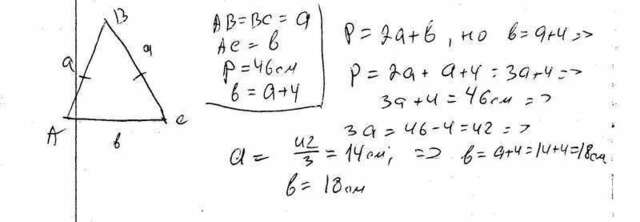 B
a
a
A
b
c
AB=BC=a
AC=b
P=46см
b=a+4
P=2a+b, но b=a+4=>
P=2a+a+4=3a+4=>
3a+4=46см=>
3a=46-4=42=>
a= 42/3 =14см; => b=a+4=14+4=18см
b=18см